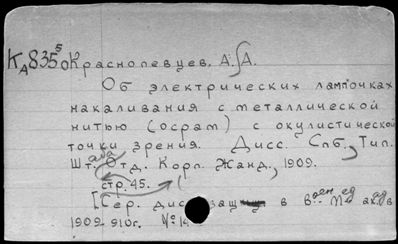 КА835⁵ Краснопевцев, А.А.
Об электрических лампочках
накаливания с металлической
нитью (осрам) с окулистической
точки зрения. Дисс. Спб, Тип.
Шт. Отд. Корп. Жанд., 1909.
стр. 45.
[Сер. дис защ в
1909-910г. №